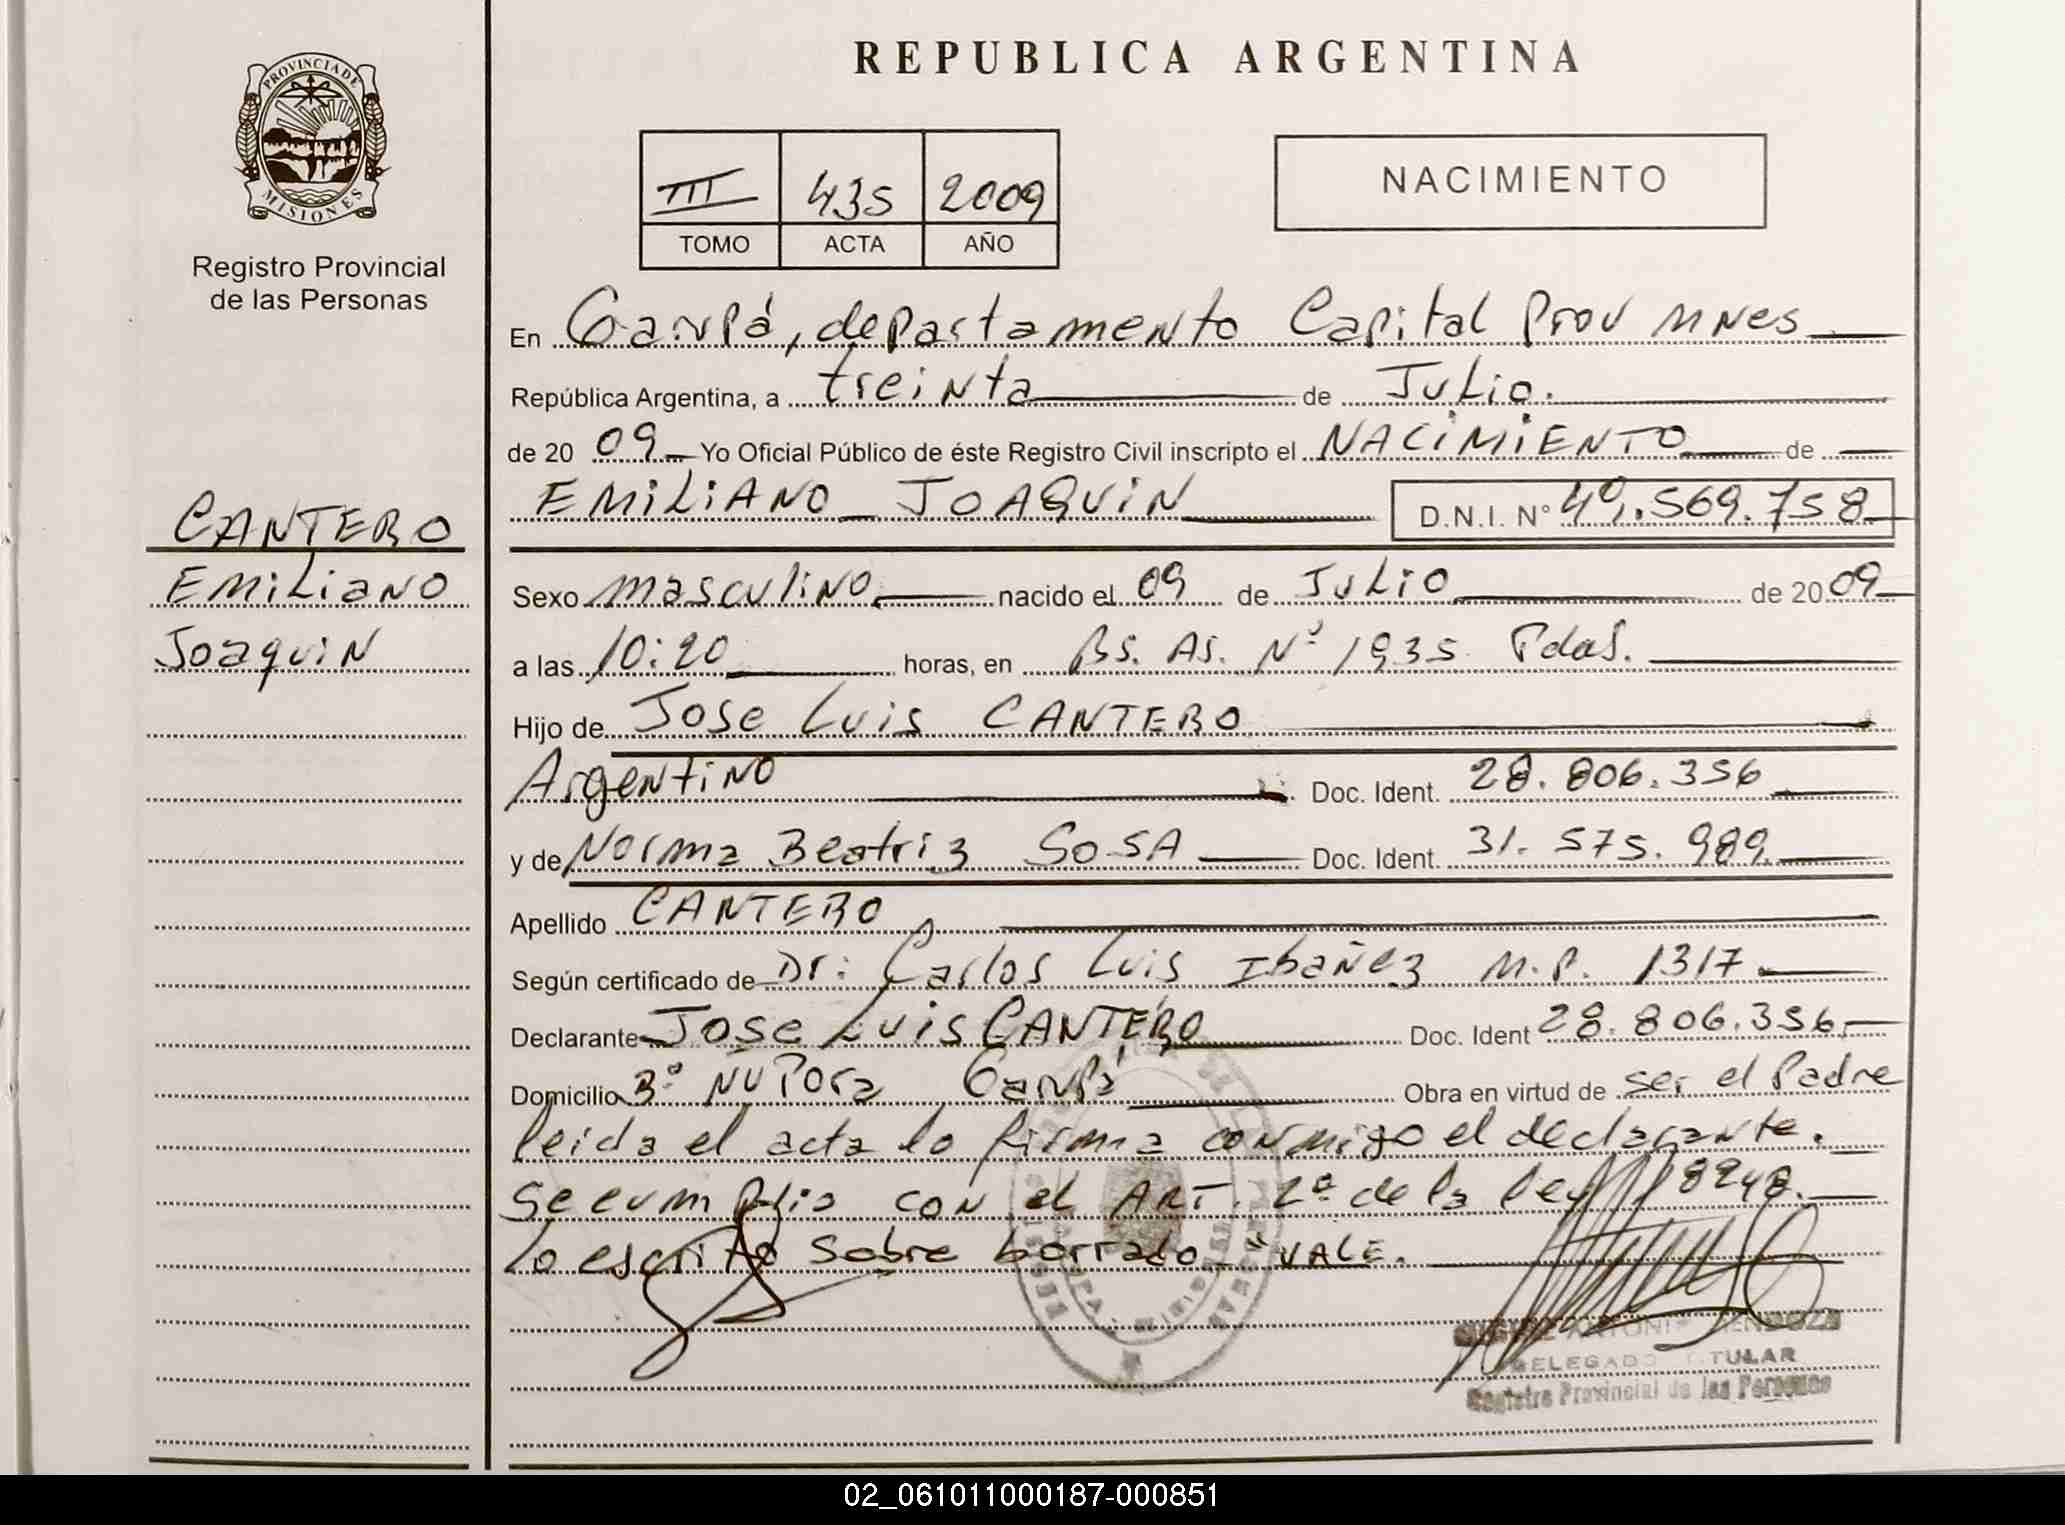 PROVINCIA DE
MISIONES
Registro Provincial
de las Personas
CANTERO
EMiLiaNO
JoaquiN
REPUBLICA ARGENTINA
III 435 2009
TOMO ACTA AÑO
NACIMIENTO
En Garupá, departamento Capital Prov MNes
República Argentina, a treinta de Julio.
de 20 09 Yo Oficial Público de éste Registro Civil inscripto el NACiMiENTO de
EMiLiANO JOAQUiN D.N.I. N° 49.569.758
Sexo masculiNO nacido el 09 de JuLiO de 20 09
a las 10:20 horas, en Bs. As. Nº 1935 Pdas.
Hijo de Jose Luis CANTERO
ArgeNtiNO Doc. Ident. 28.806.356
y de Norma Beatriz SOSA Doc. Ident. 31.575.989
Apellido CANTERO
Según certificado de Dr: Carlos Luis Ibañez M.P. 1317
Declarante Jose Luis CANTERO Doc. Ident 28.806.356
Domicilio Bº Ñu Pora Garupá Obra en virtud de ser el Padre
leida el acta la firma conmigo el declarante.
Se cumplio con el ART. 2º de la ley 18248.
Lo escrito sobre borrado "VALE.
ANTONIO MENDOZA
DELEGADO TITULAR
Registro Provincial de las Personas
02_061011000187-000851